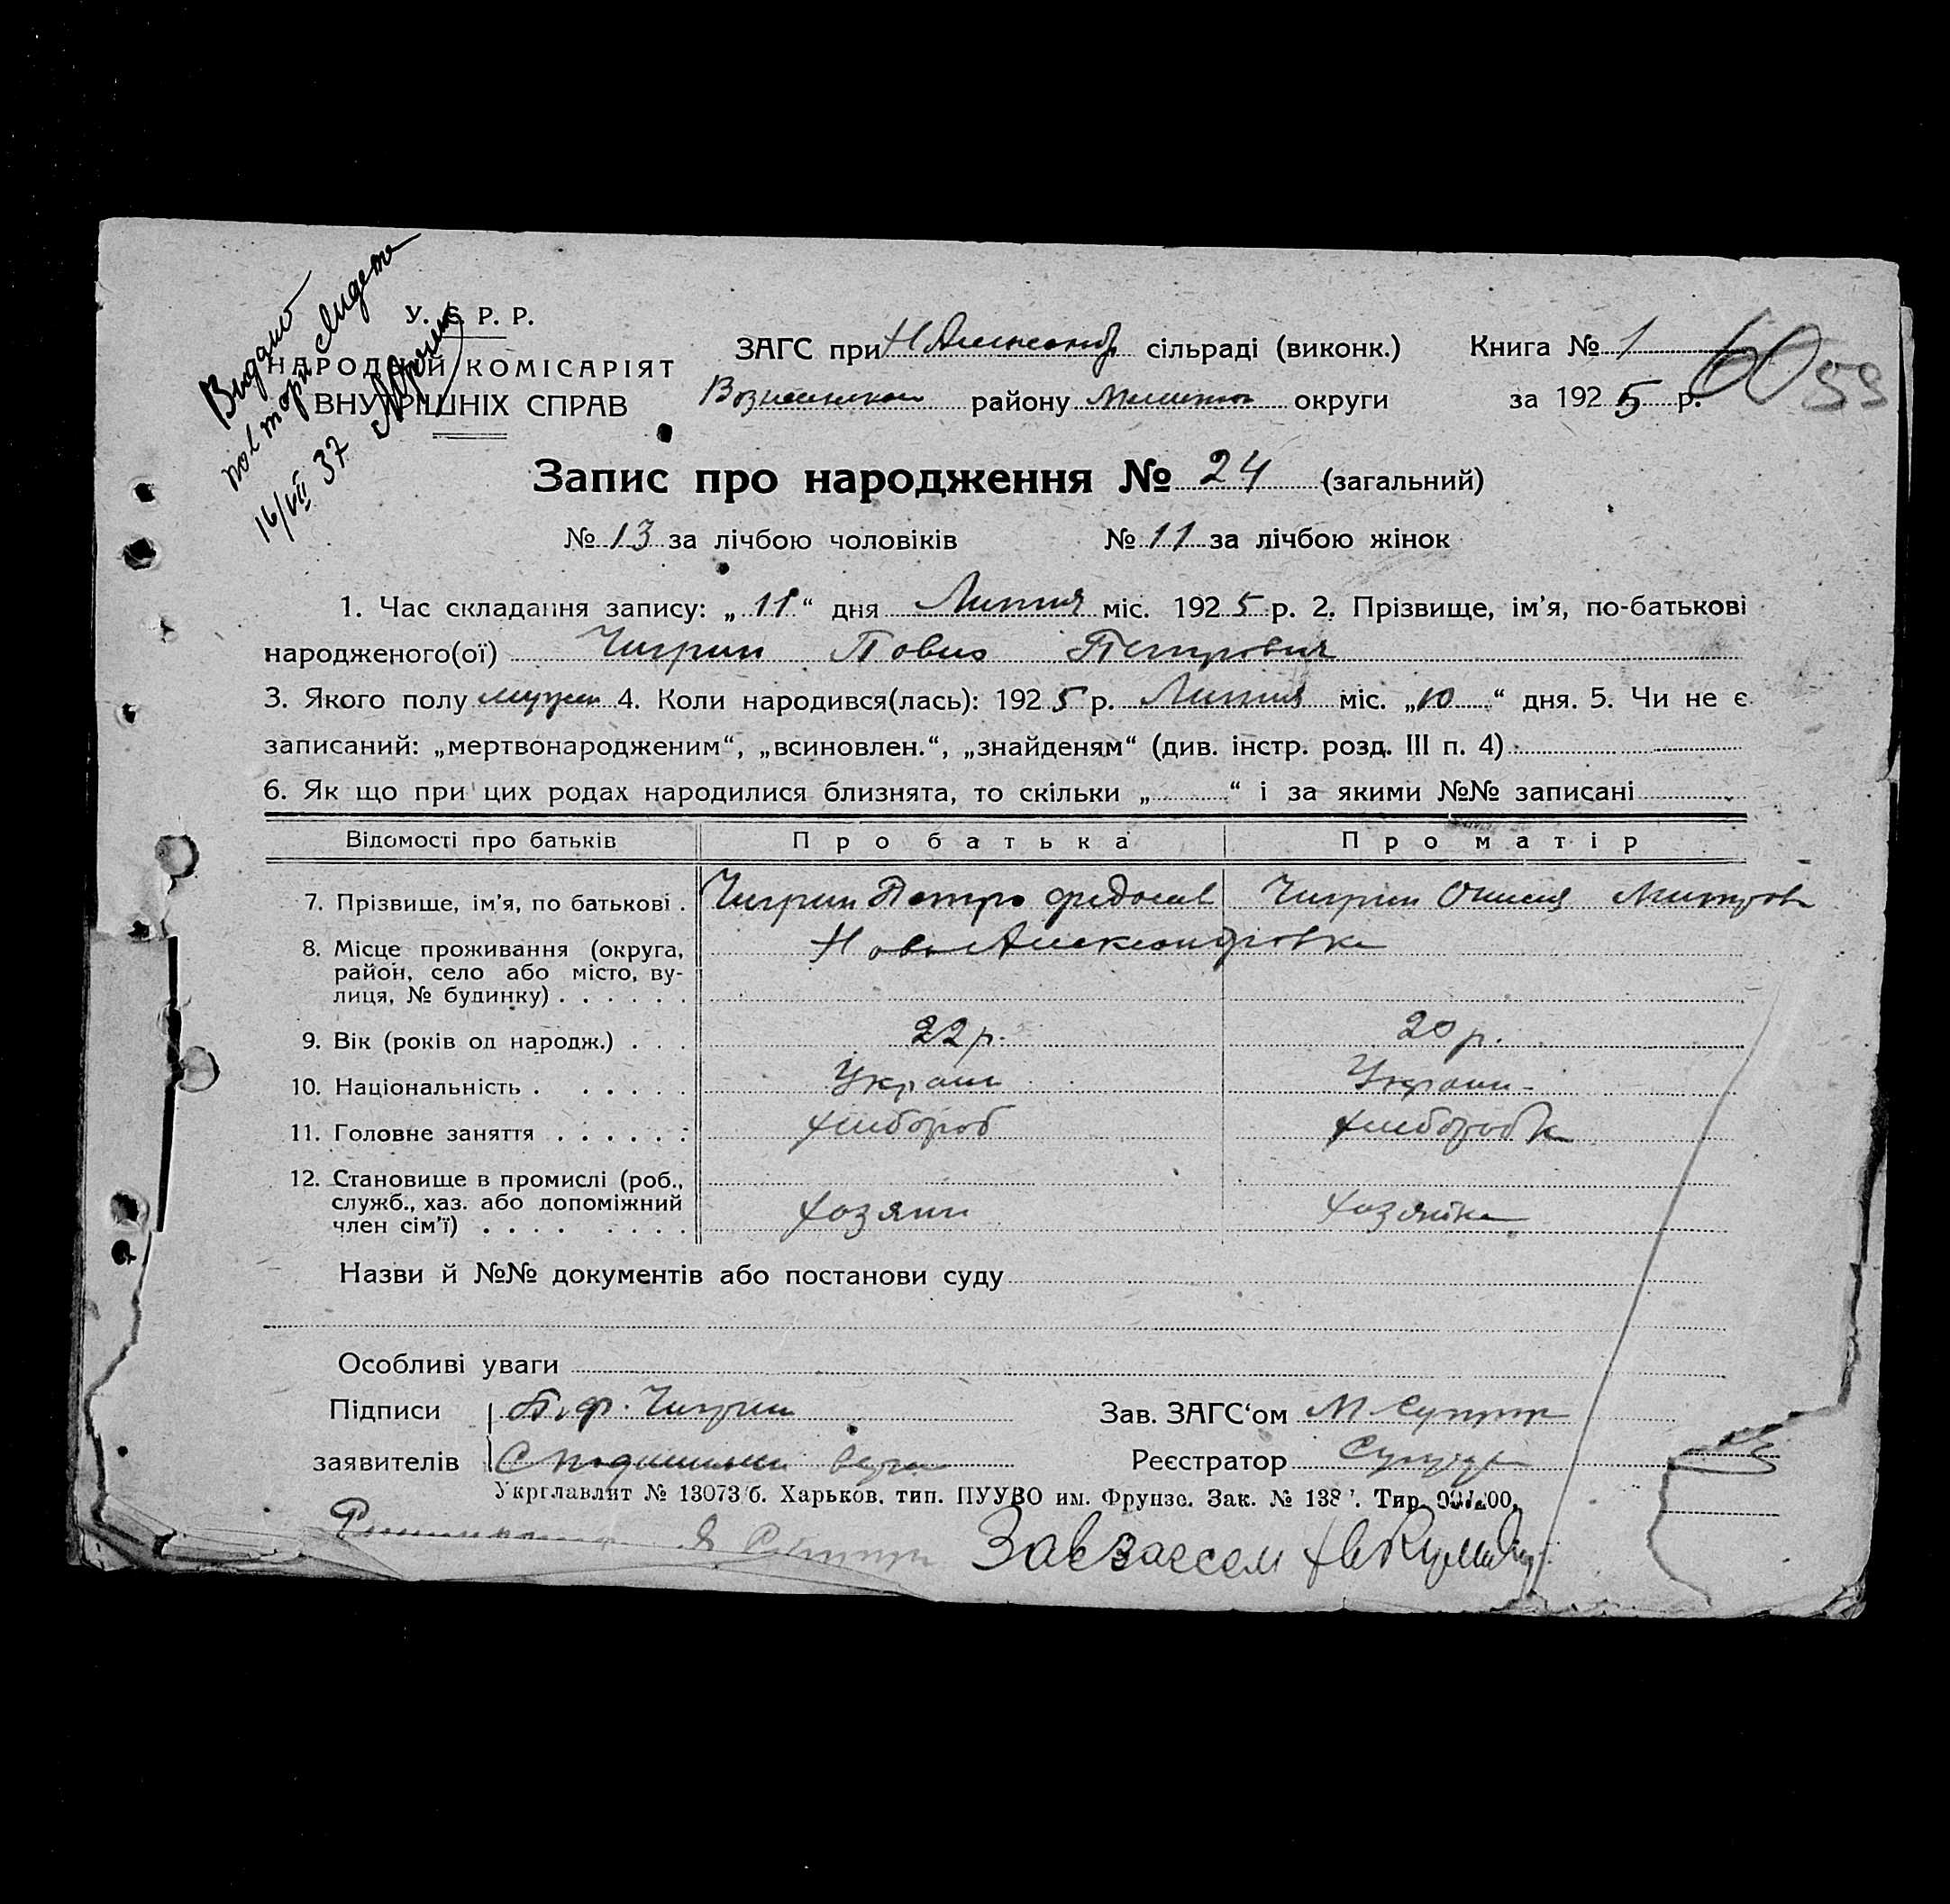 Видано
повторн.
16/VII 37
У. С. Р. Р.
НАРОДНІЙ КОМІСАРІЯТ
ВНУТРІШНІХ СПРАВ
ЗАГС при Н Александр. сільраді (виконк.)
району Мелитоп округи
Книга № 1
за 1925 р.
60 59
Запис про народження № 24 (загальний)
№ 13 за лічбою чоловіків № 11 за лічбою жінок
1. Час складання запису: „11“ дня Липня міс. 1925 р. 2. Прізвище, ім'я, по-батькові
народженого(ої) Чигрин Повло Петрович
3. Якого полу мужи 4. Коли народився(лась): 1925 р. Липня міс. „10“ дня. 5. Чи не є
записаний: „мертвонародженим“, „всиновлен.“, „знайденям“ (див. інстр. розд. III п. 4)
6. Як що при цих родах народилися близнята, то скільки „ “ і за якими №№ записані
Відомості про батьків Про батька Про матір
7. Прізвище, ім'я, по батькові . Чигрин Петро Федосов Чигрин Митров
8. Місце проживання (округа, Ново Александровка
район, село або місто, ву-
лиця, № будинку) . . . . . .
9. Вік (років од народж.) . . . 22 р. 20 р.
10. Національність . . . . . . Украин Украин-
11. Головне заняття . . . . . . хлибороб хлиборобк
12. Становище в промислі (роб.,
служб., хаз. або допоміжний хозяин хозяйка
член сім'ї) . . . . . . . .
Назви й №№ документів або постанови суду
Особливі уваги
Підписи П. Ф. Чигрин Зав. ЗАГС‘ом М
заявителів Реєстратор
Укрглавлит № 13073/б. Харьков. тип. ПУУВО им. Фрунзе. Зак. № 138 . Тир.
Завзагсом